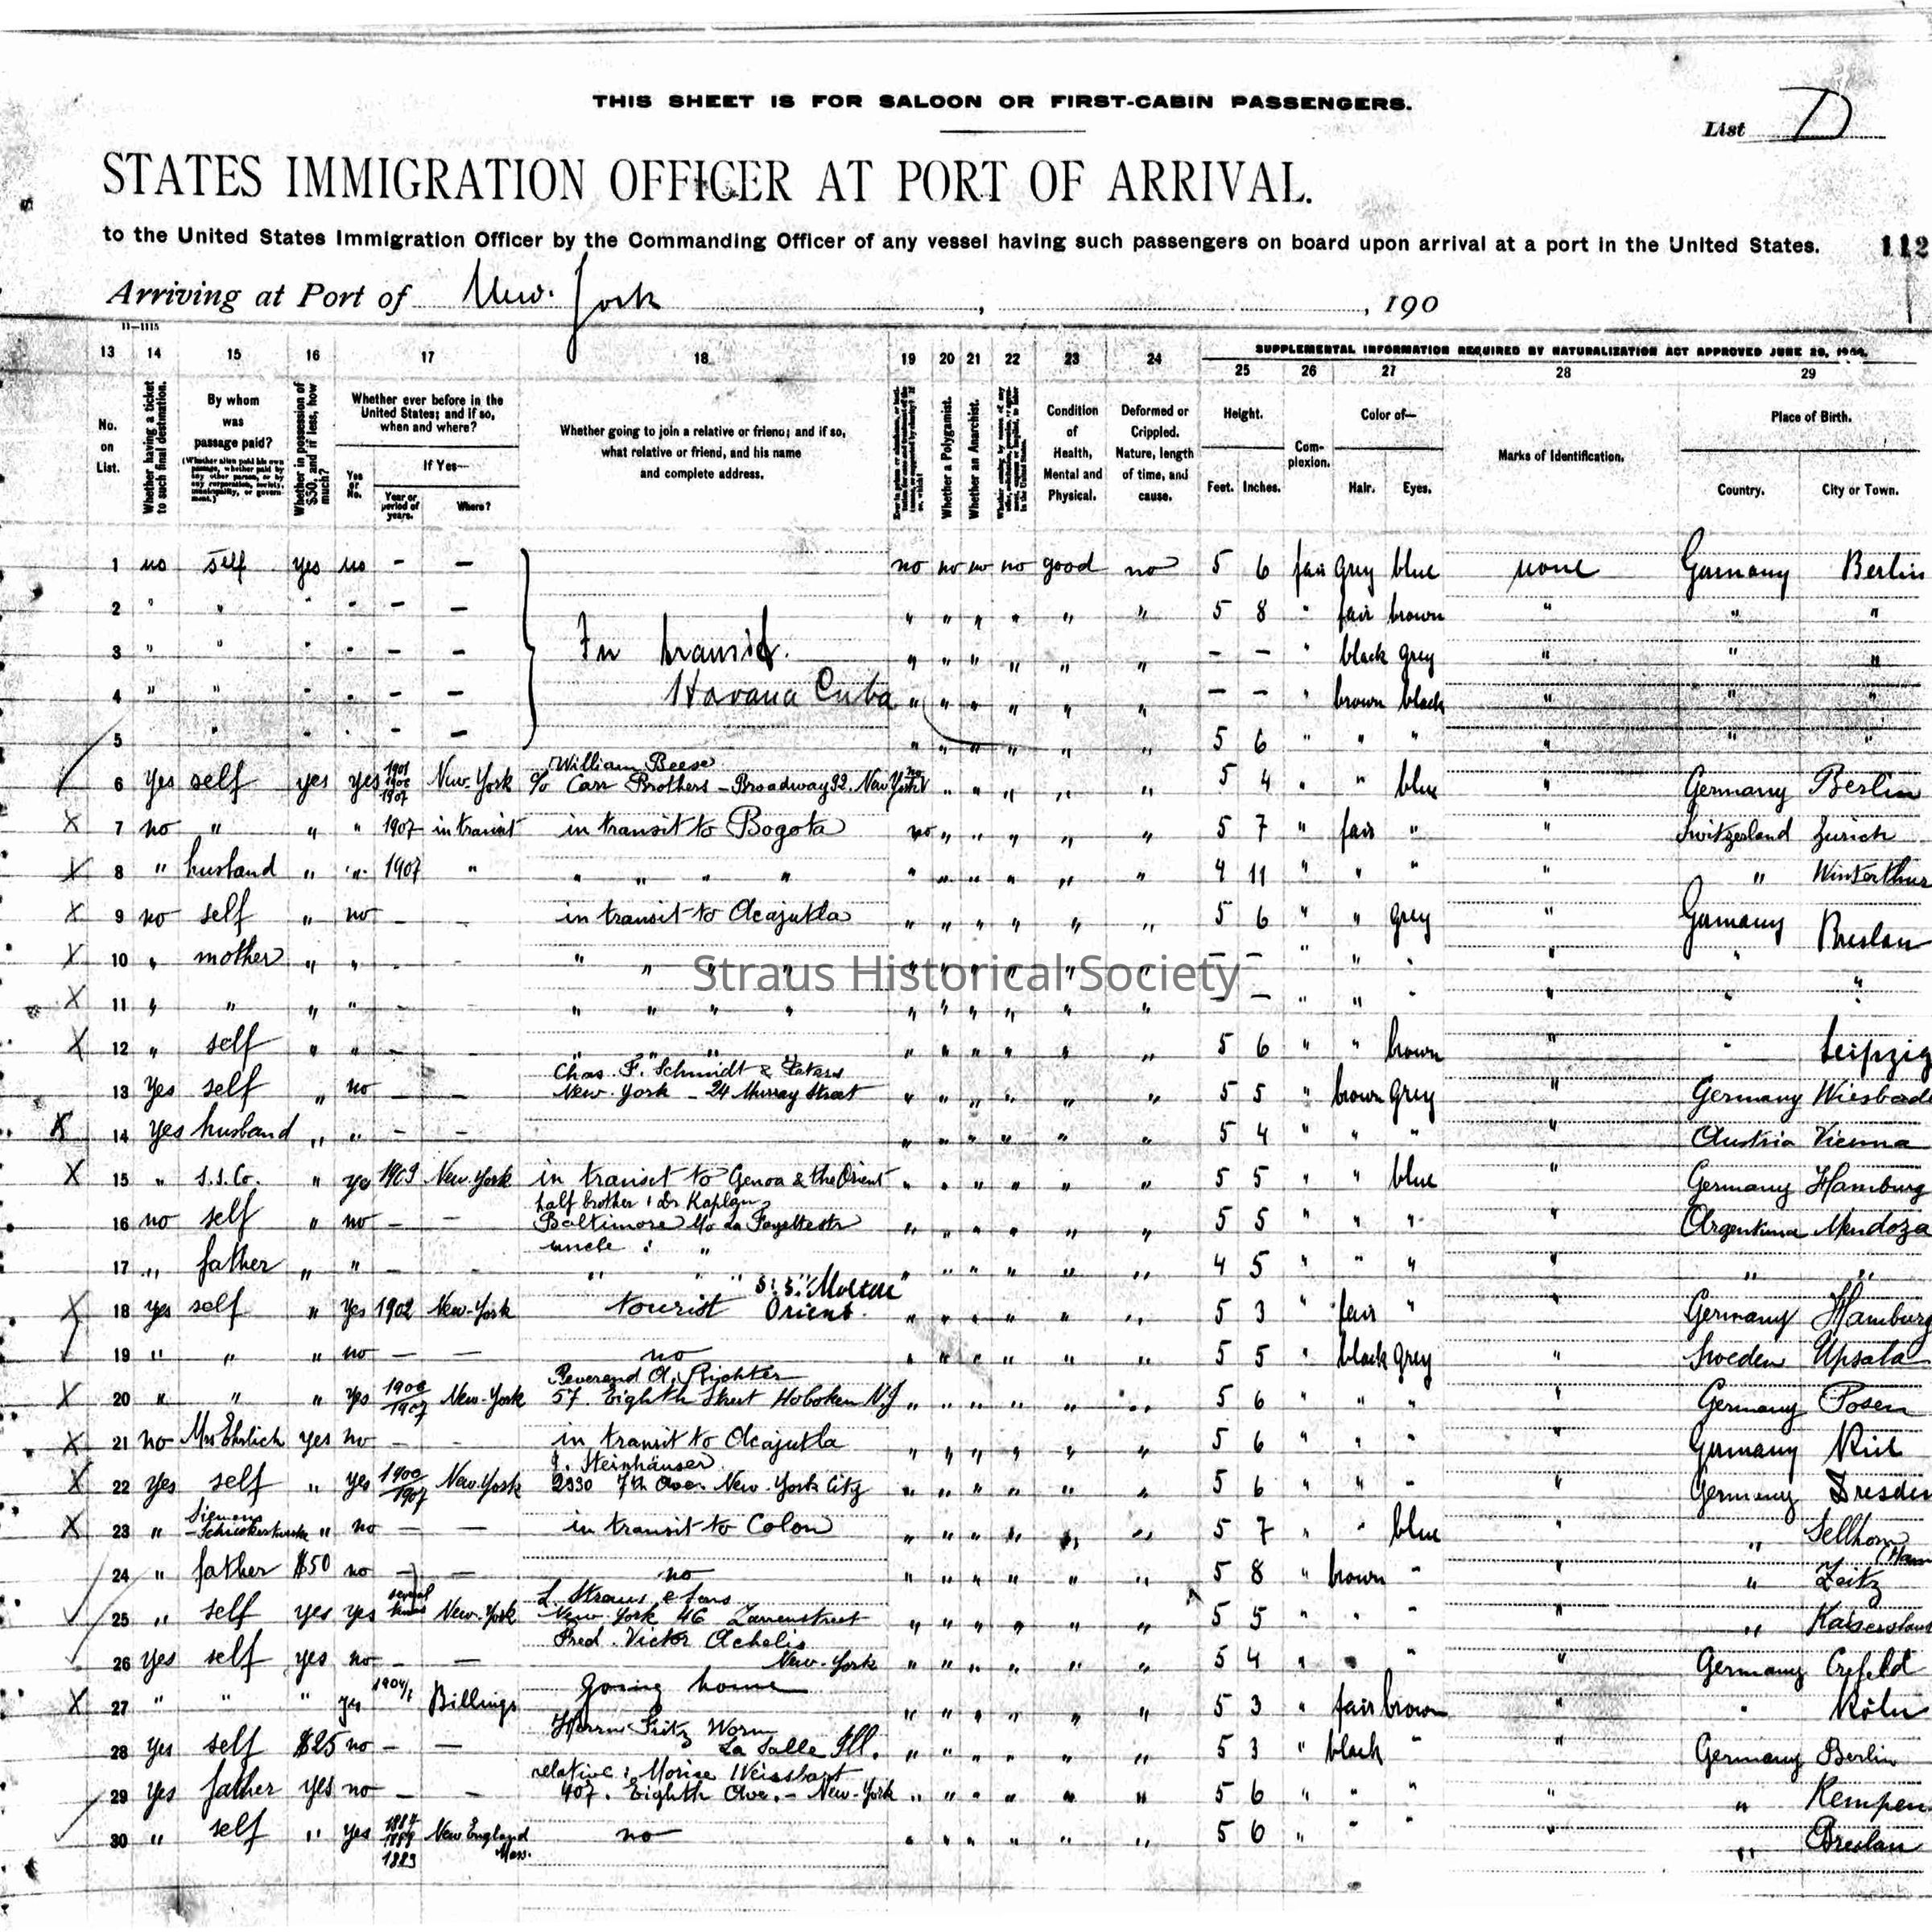 THIS SHEET IS FOR SALOON OR FIRST-CABIN PASSENGERS.
List D
STATES IMMIGRATION OFFICER AT PORT OF ARRIVAL.
to the United States Immigration Officer by the Commanding Officer of any vessel having such passengers on board upon arrival at a port in the United States. 112
Arriving at Port of New York , , 190
11—1115
SUPPLEMENTAL INFORMATION REQUIRED BY NATURALIZATION ACT APPROVED JUNE 29,
13 14 15 16 17 18 19 20 21 22 23 24 25 26 27 28 29
No. on List.
Whether having a ticket to such final destination.
By whom was passage paid?
Whether in possession of $50, and if less, how much?
Whether ever before in the United States; and if so, when and where?
Yes or No.
If Yes—
Year or period of years.
Where?
Whether going to join a relative or friend; and if so, what relative or friend, and his name and complete address.
Whether a Polygamist.
Whether an Anarchist.
Condition of Health, Mental and Physical.
Deformed or Crippled. Nature, length of time, and cause.
Height.
Feet. Inches.
Complexion.
Color of—
Hair. Eyes.
Marks of Identification.
Place of Birth.
Country. City or Town.
1 no self yes no — — no no no no good no 5 6 fair grey blue none Germany Berlin
2 " " " " — — " " " " " " 5 8 " fair brown " " "
3 " " " " — — In transit. " " " " " " — — " black grey " " "
4 " " " " — — Havana Cuba " " " " " " — — " brown black " " "
5 " " " — — " " " " " " 5 6 " " " " " "
6 Yes self yes yes 1901 1906 1907 New-York William Beese c/o Carr Brothers - Broadway 92. New York no " " " " " 5 4 " " blue " Germany Berlin
7 no " " " 1907 in transit in transit to Bogota no " " " " " 5 7 " fair " " Switzerland Zurich
8 " husband " " 1907 " " " " " " " " " " " 4 11 " " " " " Winterthur
9 no self " no — — in transit to Acajutla " " " " " " 5 6 " " grey " Germany Breslau
10 " mother " " - - " " " " " " " " " " — — " " " " " "
Straus Historical Society
11 " " " " — - " " " " " " " " " " — — " " " " " "
12 " self " " — - " " " " " " " " " 5 6 " " brown " " Leipzig
13 Yes self " no — — Chas. F. Schmidt & Peters New-York - 24 Murray Street " " " " " " 5 5 " brown grey " Germany Wiesbade
14 Yes husband " " — — " " " " " " 5 4 " " " " Austria Vienna
15 " S.S. Co. " ye 1903 New-York in transit to Genoa & the Orient " " " " " " 5 5 " " blue " Germany Hamburg
16 no self " no — — half brother : Dr Kaplan Baltimore La Fayette " " " " " " 5 5 " " " " Argentina Mendoza
17 " father " " — - uncle : " " " " " " " " " " 4 5 " " " " " "
18 yes self " Yes 1902 New-York tourist S.S. "Moltke" Orient. " " " " " " 5 3 " fair " " Germany Hamburg
19 " " " no — — no " " " " " " 5 5 " black grey " Sweden Upsala
20 " " " Yes 1906 1907 New-York Reverend A. Richter 57. Eighth Street Hoboken NJ " " " " " " 5 6 " " " " Germany Posen
21 no Mrs Ehrlich yes no — - in transit to Acajutla " " " " " " 5 6 " " " " Germany Kiel
22 Yes self " yes 1900 1907 New York J. Steinhäuser. 2330 7th Ave. New-York City " " " " " " 5 6 " " - " Germany Dresden
23 " Siemens " no — — in transit to Colon " " " " " " 5 7 " " blue " " Sellhorn
24 " father $50 no — — no " " " " " " 5 8 " brown " " " Zeitz
25 " self yes yes several times New-York L. Straus & Sons New-York 46 " " " " " " 5 5 " " " " " Kaiserslaut
26 Yes self yes no — — Fred. Victor Achelis New-York " " " " " " 5 4 " " " " Germany Crefeld
27 " " " yes Billings going home " " " " " " 5 3 " fair brown " " Köln
28 Yes self $25 no — — Herrn Fritz Worm La Salle Ill. " " " " " " 5 3 " black " " Germany Berlin
29 Yes father yes no — — relative : Morise Weissbart 407. Eighth Ave. - New-York " " " " " " 5 6 " " " " " Kempen
30 " self " yes 1887 1889 1883 New England Mass. no " " " " " " 5 6 " " " " " Breslau